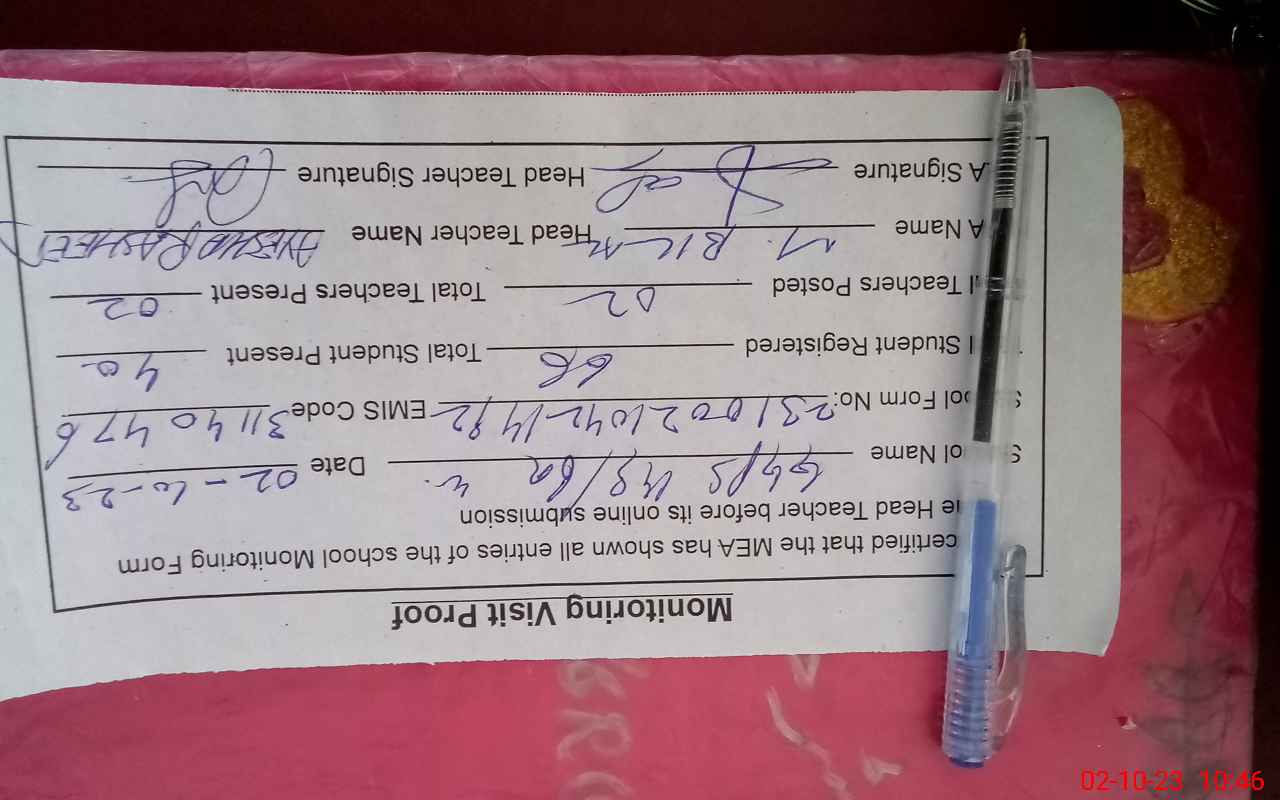 Monitoring Visit Proof
certified that the MEA has shown all entries of the school Monitoring Form
Head Teacher before its online submission
ol Name GGPS 118/6R Date 02-10-23
ool Form No: 2310021042 1412 EMIS Code 31140476
Student Registered 66 Total Student Present 40
Teachers Posted 02 Total Teachers Present 02
A Name Head Teacher Name AYESHA RASHEED
A Signature Head Teacher Signature
02-10-23 10:46